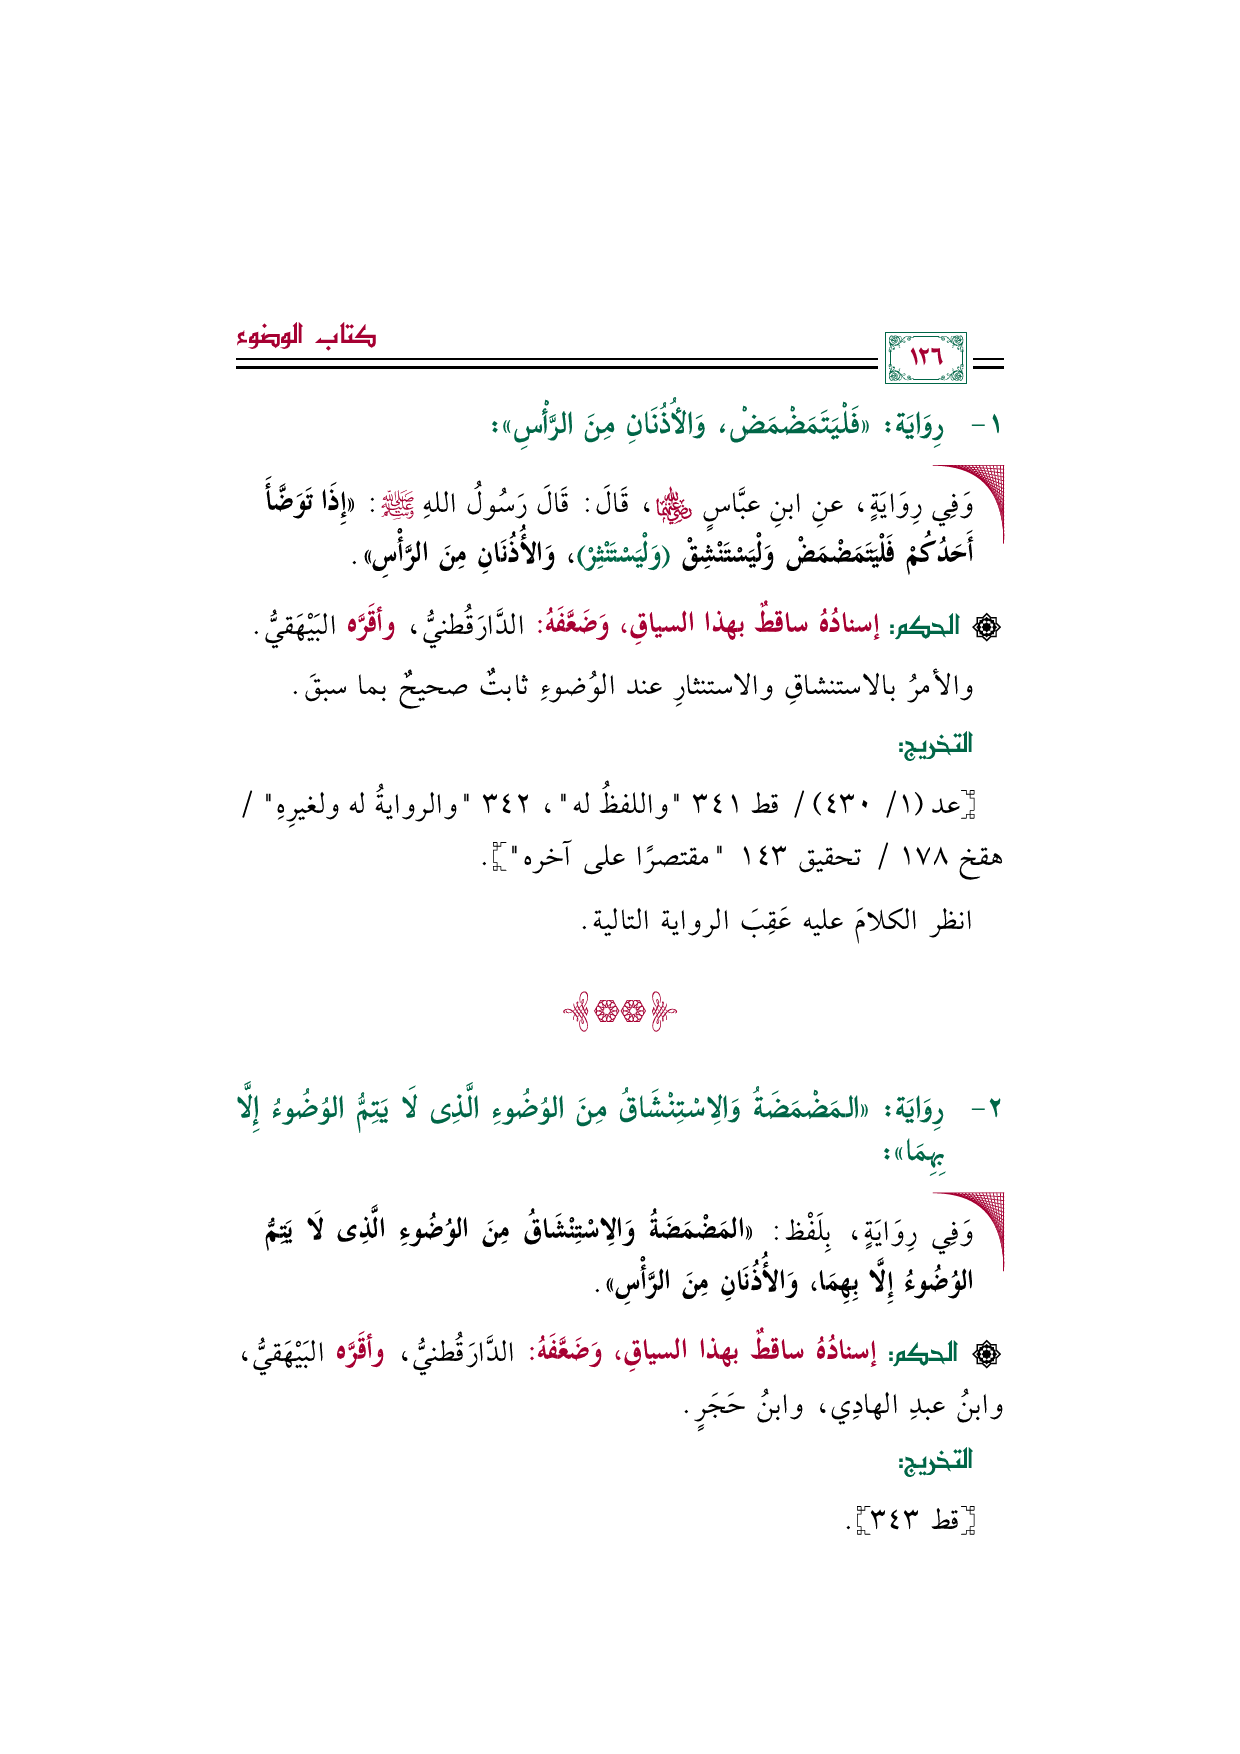 كتاب الوضوء
١٢٦
١- رِوَايَة: «فَلْيَتَمَضْمَضْ، وَالأُذُنَانِ مِنَ الرَّأْسِ»:
وَفِي رِوَايَةٍ، عنِ ابنِ عبَّاسٍ رضي الله عنهما، قَالَ: قَالَ رَسُولُ اللهِ ﷺ: «إِذَا تَوَضَّأَ
أَحَدُكُمْ فَلْيَتَمَضْمَضْ وَلْيَسْتَنْشِقْ (وَلْيَسْتَنْثِرْ)، وَالأُذُنَانِ مِنَ الرَّأْسِ».
الحكم: إسنادُهُ ساقطٌ بهذا السياقِ، وَضَعَّفَهُ: الدَّارَقُطنيُّ، وأقَرَّه البَيْهَقيُّ.
والأمرُ بالاستنشاقِ والاستنثارِ عند الوُضوءِ ثابتٌ صحيحٌ بما سبقَ.
التخريج:
[عد (١/ ٤٣٠) / قط ٣٤١ "واللفظُ له"، ٣٤٢ "والروايةُ له ولغيرِهِ" /
هقخ ١٧٨ / تحقيق ١٤٣ "مقتصرًا على آخره"].
انظر الكلامَ عليه عَقِبَ الرواية التالية.
٢- رِوَايَة: «المَضْمَضَةُ وَالِاسْتِنْشَاقُ مِنَ الوُضُوءِ الَّذِى لَا يَتِمُّ الوُضُوءُ إِلَّا
بِهِمَا»:
وَفِي رِوَايَةٍ، بِلَفْظ: «المَضْمَضَةُ وَالِاسْتِنْشَاقُ مِنَ الوُضُوءِ الَّذِى لَا يَتِمُّ
الوُضُوءُ إِلَّا بِهِمَا، وَالأُذُنَانِ مِنَ الرَّأْسِ».
الحكم: إسنادُهُ ساقطٌ بهذا السياقِ، وَضَعَّفَهُ: الدَّارَقُطنيُّ، وأقَرَّه البَيْهَقيُّ،
وابنُ عبدِ الهادِي، وابنُ حَجَرٍ.
التخريج:
[قط ٣٤٣].